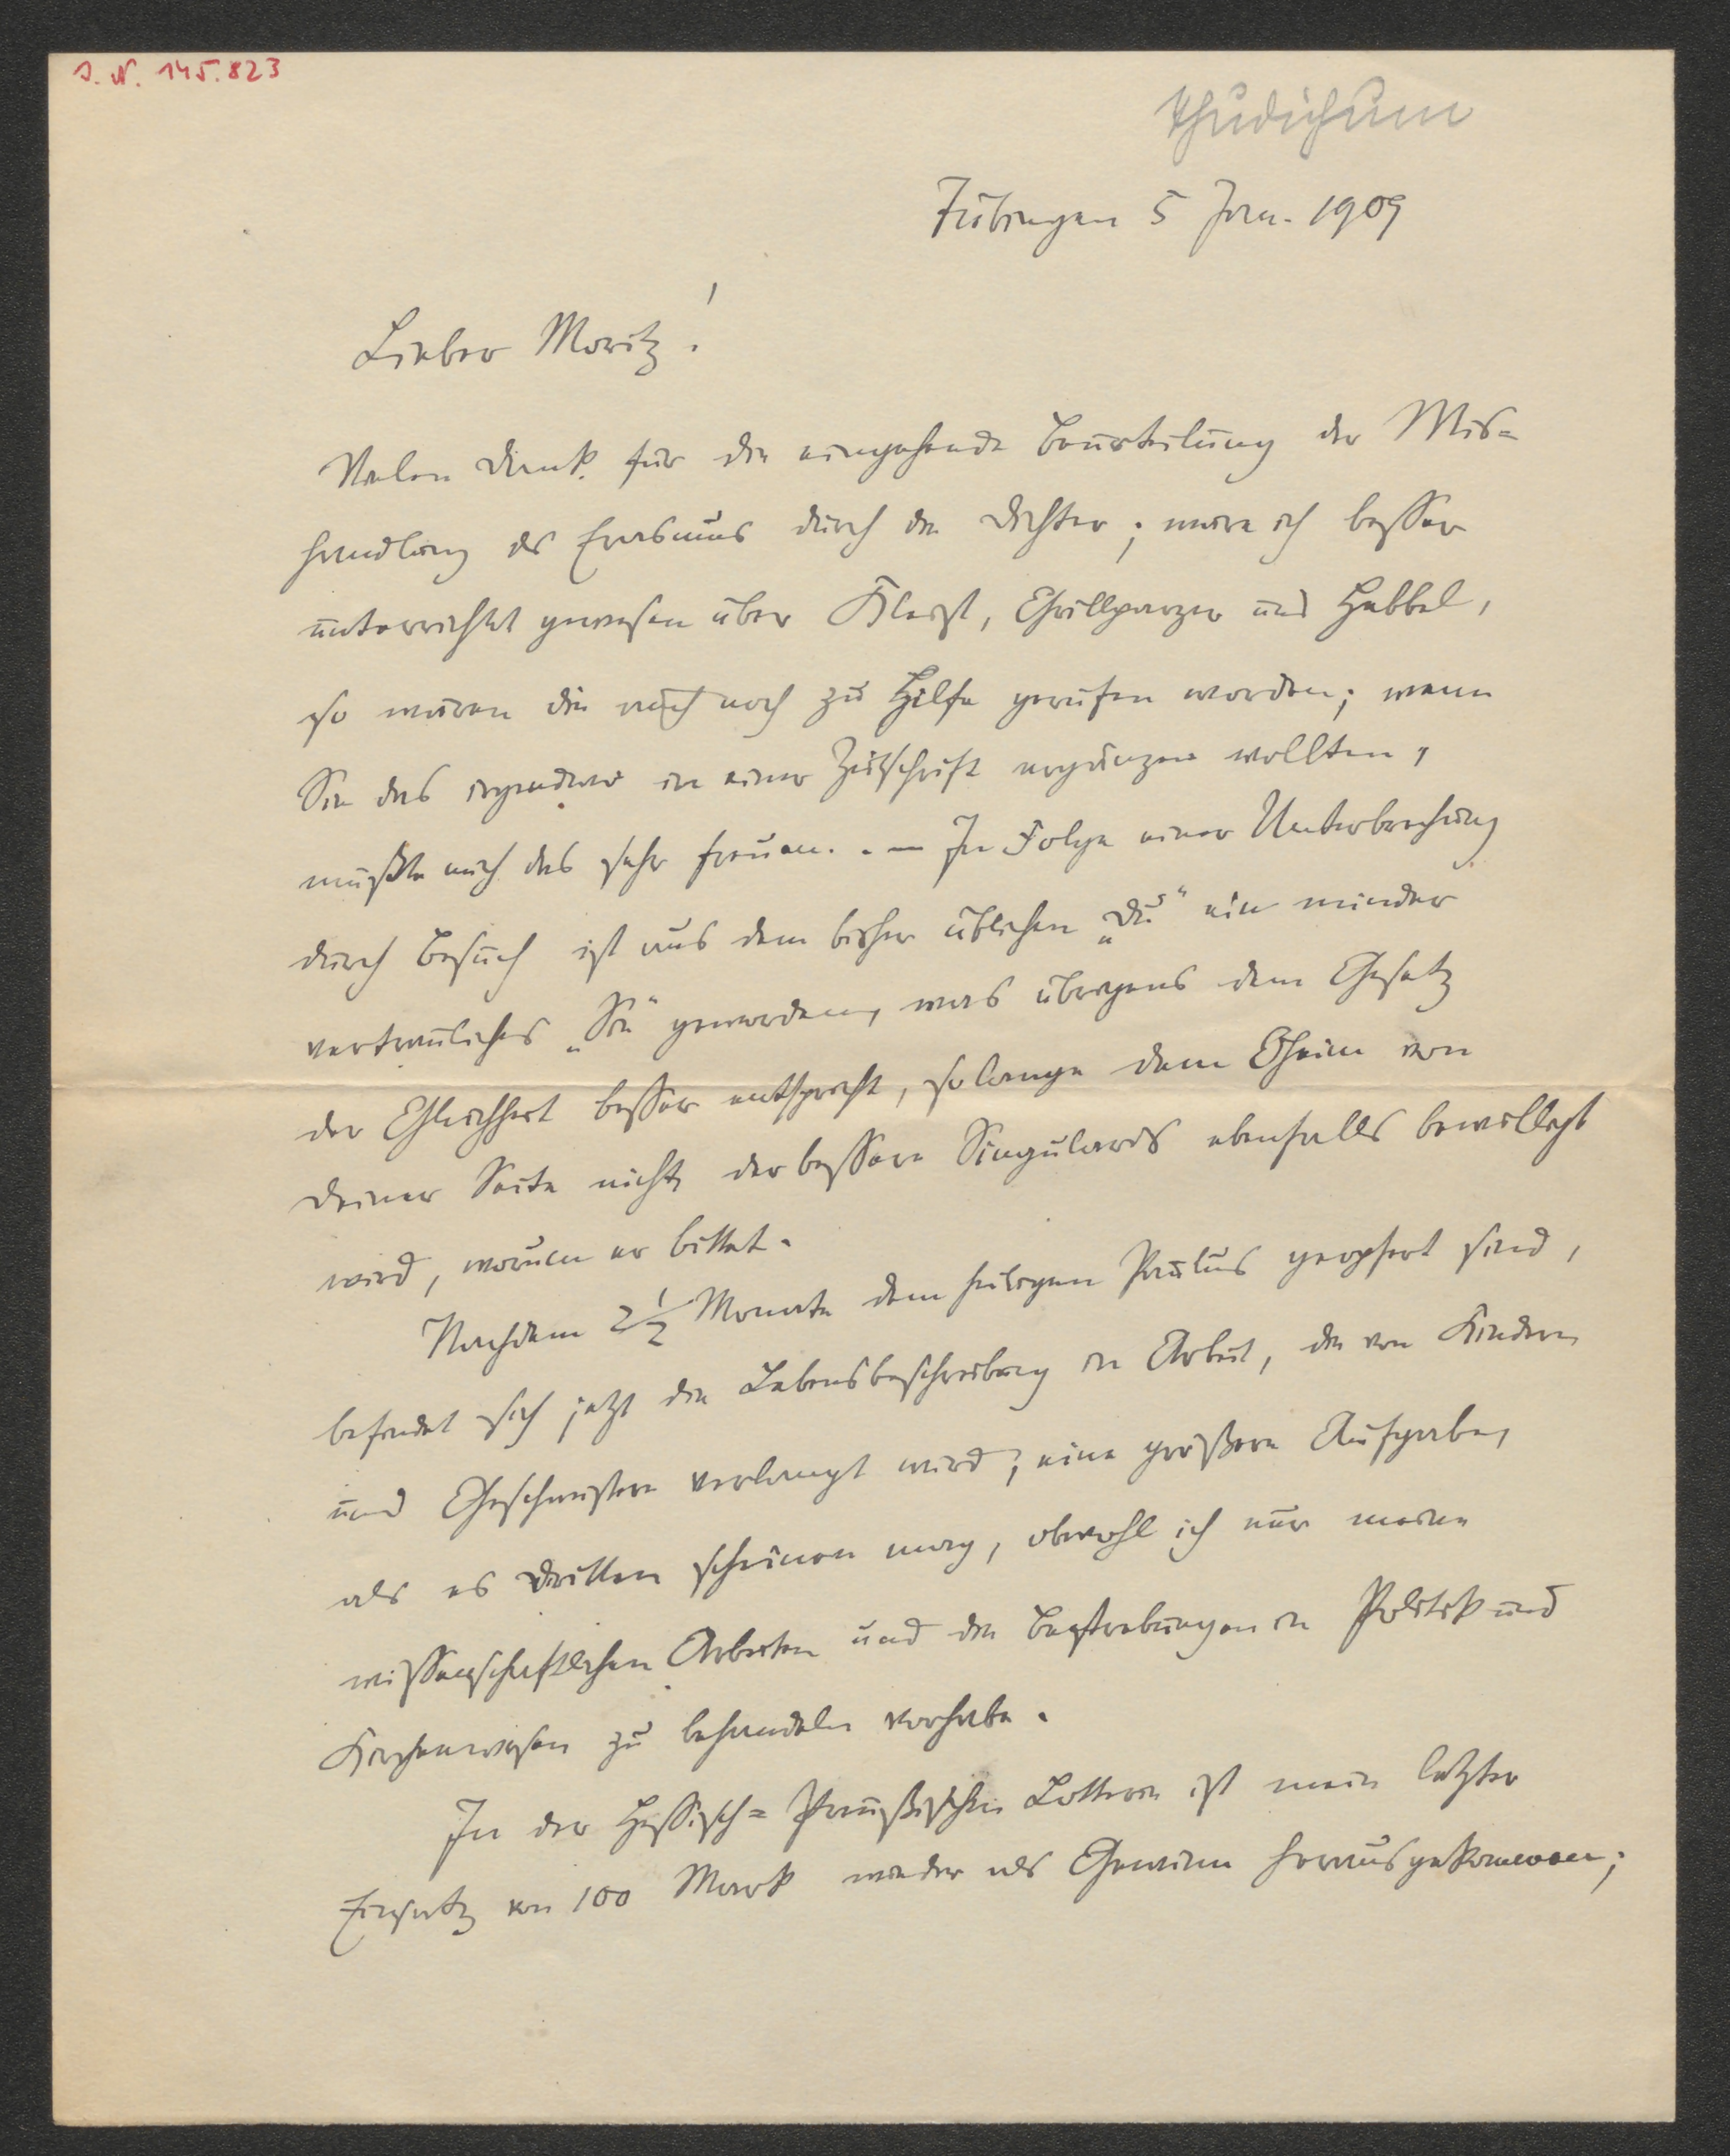 I. N. 145.823
Thudichum
Tübingen 5 Jan. 1909
Lieber Moritz!
Vielen Dank für die eingehende Beurteilung der Mis=
handlung des Erasmus durch die Dichter; wäre ich besser
unterrichtet gewesen über Kleist, Grillparzer und Hebbel,
so wären die auch noch zu Hilfe gerufen worden; wenn
Sie das irgendwo in einer Zeitschrift ergänzen wollten,
müßte mich das sehr freuen. — In Folge einer Unterbrechung
durch Besuch ist aus dem bisher üblichen „Du“ ein minder
vertrauliches „Sie“ geworden, was übrigens dem Gesetz
der Gleichheit besser entspricht, solange dem Oheim von
Deiner Seite nicht der bessere Singularis ebenfalls bewilligt
wird, worum er bittet.
Nachdem 2 1/2 Monate dem heiligen Paulus geopfert sind,
befindet sich jetzt die Lebensbeschreibung in Arbeit, die von Kindern
und Geschwistern verlangt wird; eine größere Aufgabe,
als es Dritten scheinen mag, obwohl ich nur meine
wissenschaftlichen Arbeiten und die Bestrebungen in Politik und
Kirchenwesen zu behandeln vorhabe.
In der Hessisch=Preußischen Lotterie ist mein letzter
Einsatz von 100 Mark wieder als Gewinn herausgekommen;